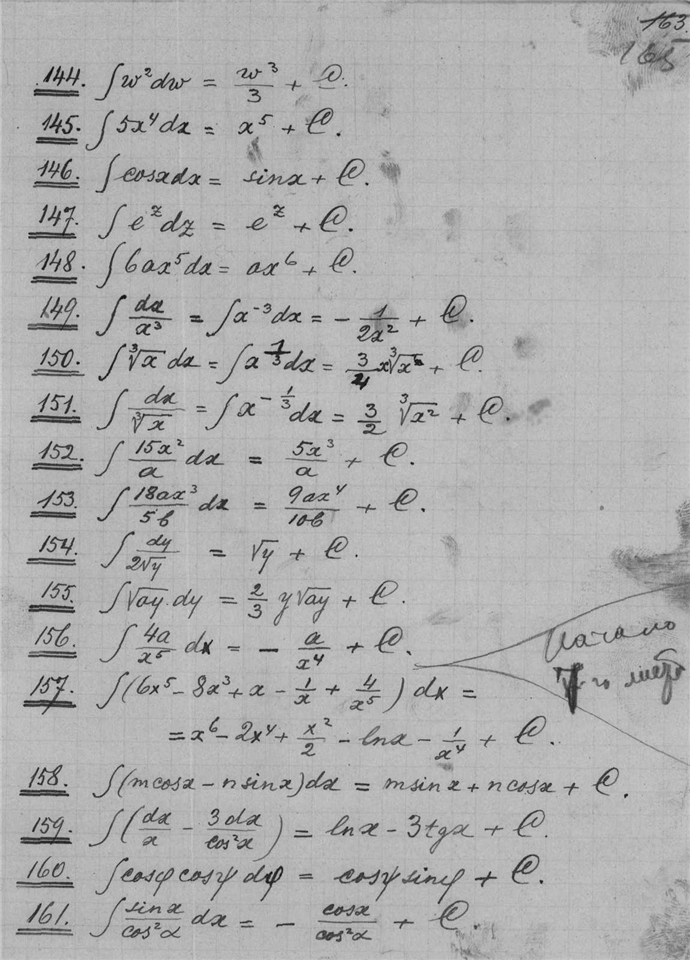 163
165
144. ∫w²dw = w³/3 + C.
145. ∫5x⁴dx = x⁵ + C.
146. ∫cosxdx = sinx + C.
147. ∫e^z dz = e^z + C.
148. ∫6ax⁵dx = ax⁶ + C.
149. ∫dx/x³ = ∫x⁻³dx = - 1/2x² + C.
150. ∫∛x dx = ∫x^(1/3)dx = 3/4 x∛x + C.
151. ∫dx/∛x = ∫x^(-1/3)dx = 3/2 ∛x² + C.
152. ∫15x²/a dx = 5x³/a + C.
153. ∫18ax³/5b dx = 9ax⁴/10b + C.
154. ∫dy/2√y = √y + C.
155. ∫√ay.dy = 2/3 y√ay + C.
156. ∫4a/x⁵ dx = - a/x⁴ + C.
Начало
V-го листа
157. ∫(6x⁵ - 8x³ + x - 1/x + 4/x⁵) dx =
= x⁶ - 2x⁴ + x²/2 - lnx - 1/x⁴ + C.
158. ∫(mcosx - nsinx)dx = msinx + ncosx + C.
159. ∫(dx/x - 3dx/cos²x) = lnx - 3tgx + C.
160. ∫cosφcosψ dφ = cosψsinφ + C.
161. ∫sinx/cos²α dx = - cosx/cos²α + C.